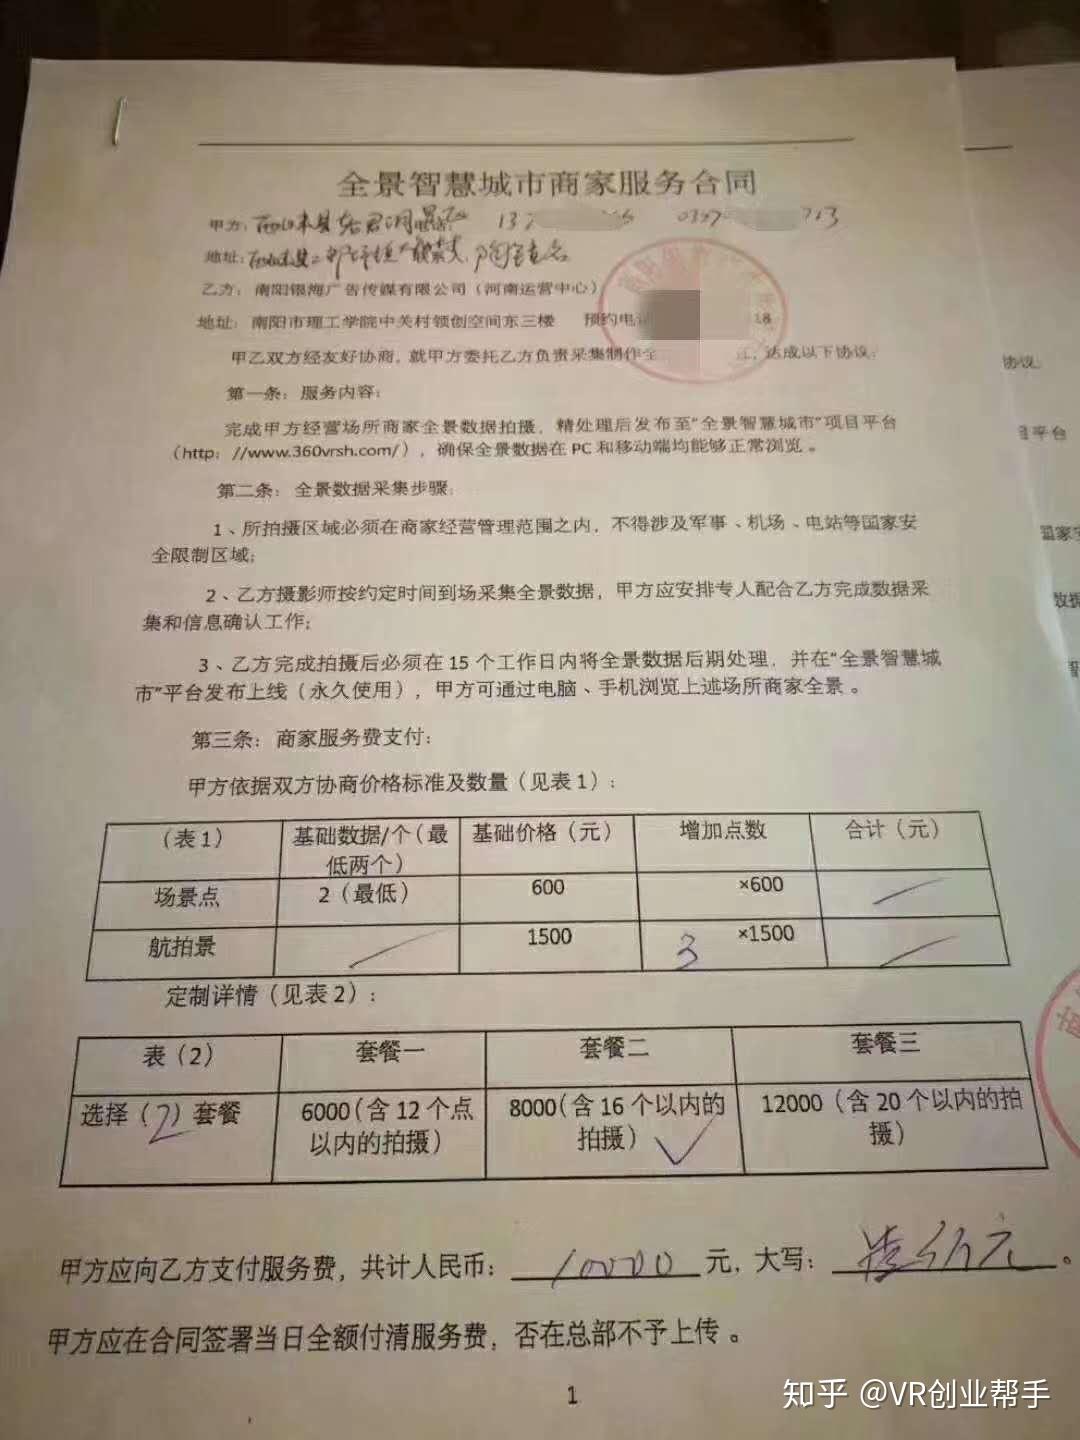 全景智慧城市商家服务合同
甲方：
地址：
乙方：南阳银海广告传媒有限公司（河南运营中心）
地址：南阳市理工学院中关村领创空间东三楼 预约电话 18
甲乙双方经友好协商，就甲方委托乙方负责采集制作全 达成以下协议：
协议：
第一条：服务内容：
完成甲方经营场所商家全景数据拍摄，精处理后发布至“全景智慧城市”项目平台
目平台
（http：//www.360vrsh.com/），确保全景数据在 PC 和移动端均能够正常浏览。
第二条：全景数据采集步骤：
1、所拍摄区域必须在商家经营管理范围之内，不得涉及军事、机场、电站等国家安
国家安
全限制区域；
2、乙方摄影师按约定时间到场采集全景数据，甲方应安排专人配合乙方完成数据采
数据
集和信息确认工作；
3、乙方完成拍摄后必须在 15 个工作日内将全景数据后期处理，并在“全景智慧城
市”平台发布上线（永久使用），甲方可通过电脑、手机浏览上述场所商家全景。
第三条：商家服务费支付：
甲方依据双方协商价格标准及数量（见表 1）：
（表 1） 基础数据/个（最低两个） 基础价格（元） 增加点数 合计（元）
场景点 2（最低） 600 ×600
航拍景 1500 3 ×1500
定制详情（见表 2）：
表（2） 套餐一 套餐二 套餐三
选择（2）套餐 6000（含 12 个点以内的拍摄） 8000（含 16 个以内的拍摄） 12000（含 20 个以内的拍摄）
甲方应向乙方支付服务费，共计人民币：10000 元，大写：
甲方应在合同签署当日全额付清服务费，否在总部不予上传。
1
知乎 @VR创业帮手